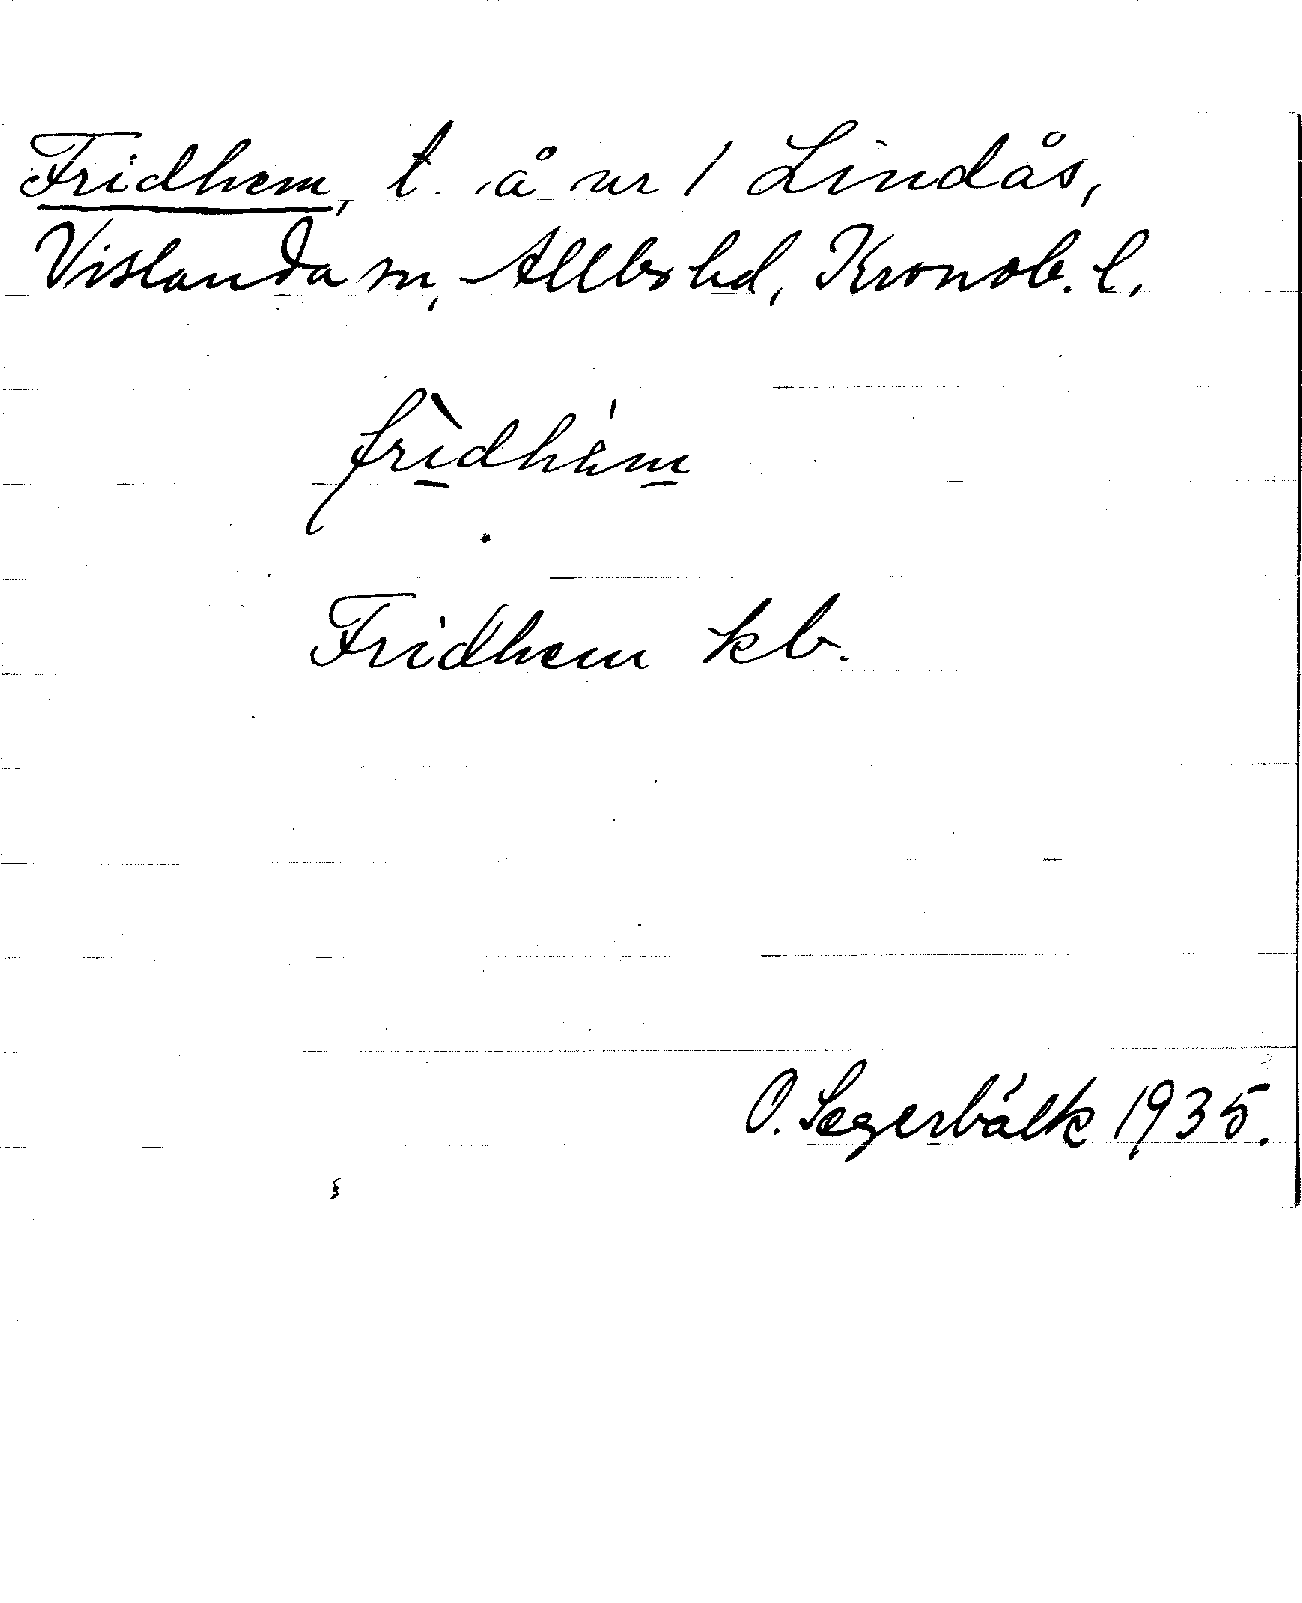 Fridhem, t. å nr 1 Lindås,
Vislanda sn, Allbo hd, Kronob. l.
frìdhém
Fridhem kb.
O. Segerbälk 1935.